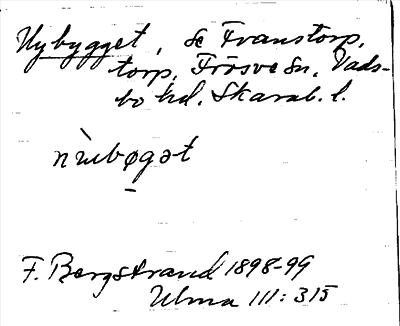 Nybygget, se Franstorp,
torp, Frösve sn, Vads-
bo hd. Skarab. l.
nẁubøgət
F. Bergstrand 1898-99
Ulma 111:315